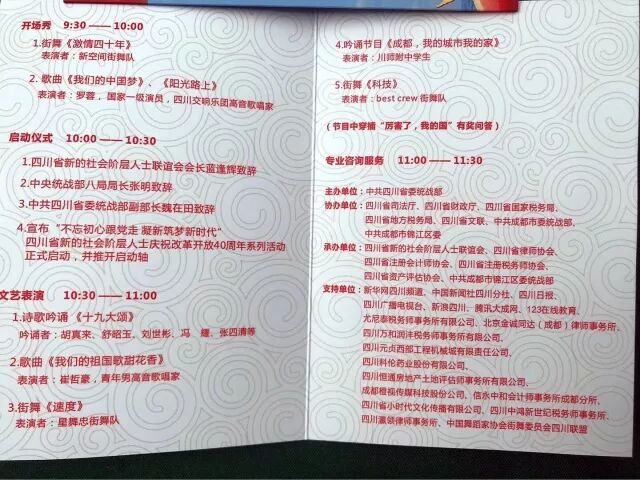 开场秀 9:30 —— 10:00
1.街舞《激情四十年》
表演者：新空间街舞队
2. 歌曲《我们的中国梦》、《阳光路上》
表演者：罗蓉，国家一级演员，四川交响乐团高音歌唱家
启动仪式 10:00 —— 10:30
1.四川省新的社会阶层人士联谊会会长蓝逢辉致辞
2.中央统战部八局局长张明致辞
3.中共四川省委统战部副部长魏在田致辞
4.宣布“不忘初心跟党走 凝新筑梦新时代”
四川省新的社会阶层人士庆祝改革开放40周年系列活动
正式启动，并推开启动轴
文艺表演 10:30 —— 11:00
1.诗歌吟诵 《十九大颂》
吟诵者：胡真来、舒昭玉、刘世彬、冯 耀、张四清等
2.歌曲《我们的祖国歌甜花香》
表演者：崔哲豪，青年男高音歌唱家
3.街舞《速度》
表演者：星舞忠街舞队
4.吟诵节目《成都，我的城市我的家》
表演者：川师附中学生
5.街舞《科技》
表演者：best crew 街舞队
（节目中穿插“厉害了，我的国”有奖问答）
专业咨询服务 11:00 —— 11:30
主办单位：中共四川省委统战部
协办单位：四川省司法厅、四川省财政厅、四川省国家税务局、
四川省地方税务局、四川省文联、中共成都市委统战部、
中共成都市锦江区委
承办单位：四川省新的社会阶层人士联谊会、四川省律师协会、
四川省注册会计师协会、四川省注册税务师协会、
四川省资产评估协会、中共成都市锦江区委统战部
支持单位：新华网四川频道、中国新闻社四川分社、四川日报、
四川广播电视台、新浪四川、腾讯大成网、123在线教育、
尤尼泰税务师事务所有限公司、北京金诚同达（成都）律师事务所、
四川万和润沣税务师事务所有限公司、
四川元贞西部工程机械城有限责任公司、
四川科伦药业股份有限公司、
四川恒通房地产土地评估师事务所有限公司、
成都橙视传媒科技股份公司、信永中和会计师事务所成都分所、
四川省小时代文化传播有限公司、四川中鸿新世纪税务师事务所、
四川瀛领律师事务所、中国舞蹈家协会街舞委员会四川联盟